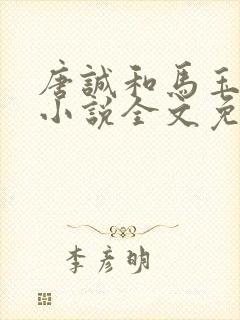 唐誠和馬玉
小說全文免
李彥明